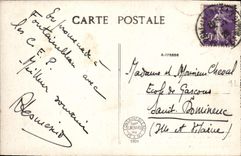 CARTE POSTALE
En promenade à
Fontainebleau avec
les C.E.P.
Meilleur souvenir
Madame et Monsieur Cheval
Ecole de Garçons
Saint Domineuc
(Ille et Vilaine)